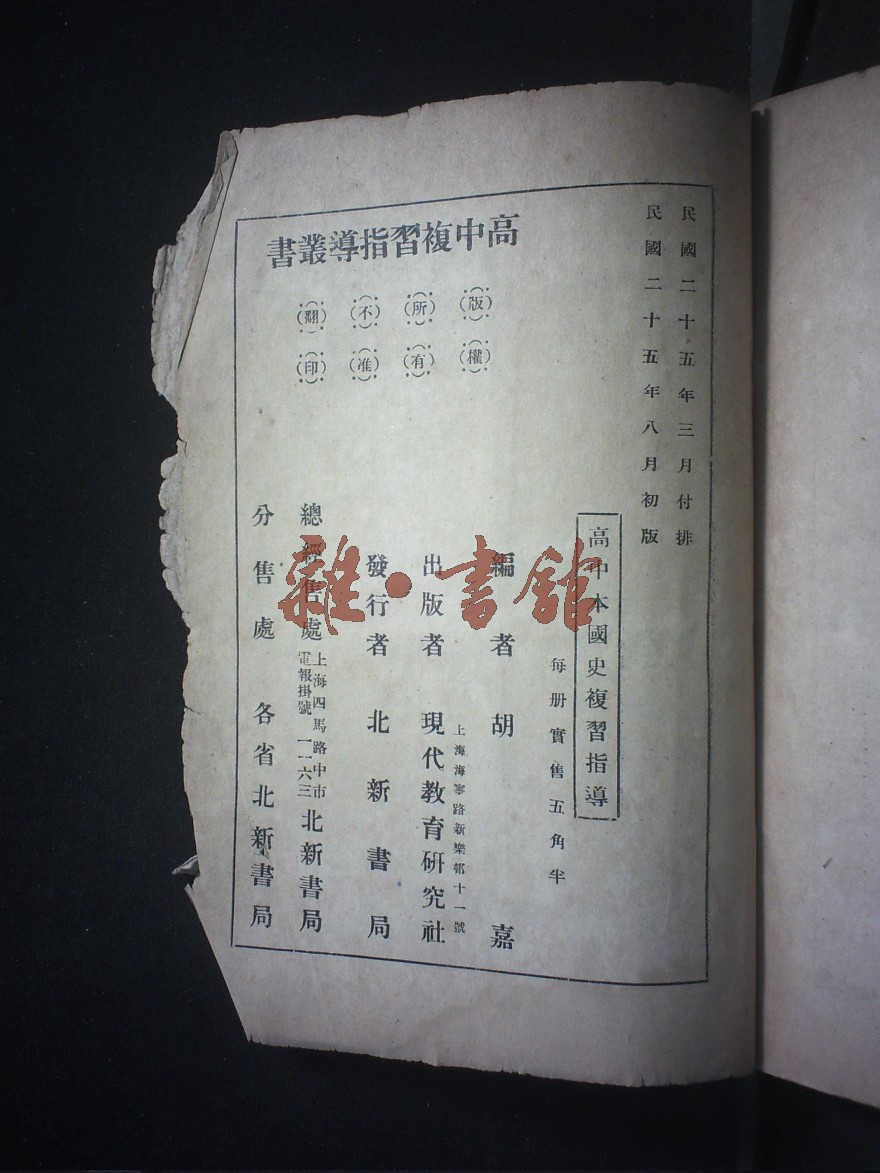 民國二十五年三月付排
民國二十五年八月初版
高中複習指導叢書
版權所有
不准翻印
高中本國史複習指導
每册實售五角半
編者 胡嘉
出版者 現代教育研究社
上海海寧路新樂邨十一號
發行者 北新書局
總經售處 北新書局
上海四馬路中市
電報掛號一一六三
分售處 各省北新書局
雜·書館